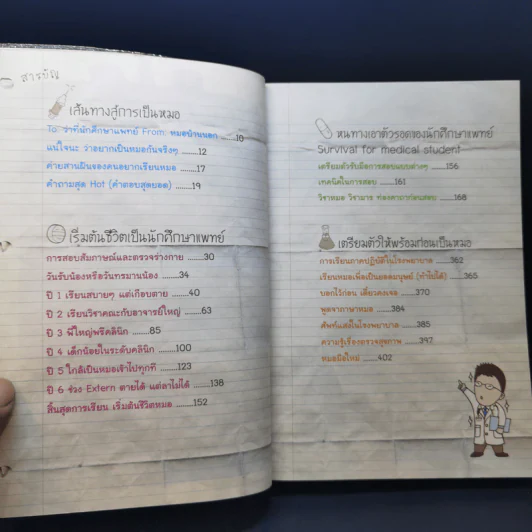 สารบัญ
เส้นทางสู่การเป็นหมอ
To: ว่าที่นักศึกษาแพทย์ From: หมอบ้านนอก ........10
แน่ใจนะ ว่าอยากเป็นหมอกันจริงๆ ........12
ค่ายสานฝันของคนอยากเรียนหมอ ........17
คำถามสุด Hot (คำตอบสุดยอด) ........19
เริ่มต้นชีวิตเป็นนักศึกษาแพทย์
การสอบสัมภาษณ์และตรวจร่างกาย ........30
วันรับน้องหรือวันทรมานน้อง ........34
ปี 1 เรียนสบายๆ แต่เกือบตาย ........40
ปี 2 เรียนวิชาคณะกับอาจารย์ใหญ่ ........63
ปี 3 พี่ใหญ่พรีคลินิก ........85
ปี 4 เด็กน้อยในระดับคลินิก ........100
ปี 5 ใกล้เป็นหมอเข้าไปทุกที ........123
ปี 6 ช่วง Extern ตายได้ แต่ลาไม่ได้ ........138
สิ้นสุดการเรียน เริ่มต้นชีวิตหมอ ........152
หนทางเอาตัวรอดของนักศึกษาแพทย์
Survival for medical student
เตรียมตัวรับมือการสอบแบบต่างๆ ........156
เทคนิคในการสอบ ........161
วิชาหมอ วิชามาร ท่องคาถาก่อนสอบ ........168
เตรียมตัวให้พร้อมก่อนเป็นหมอ
การเรียนภาคปฏิบัติในโรงพยาบาล ........362
เรียนหมอเพื่อเป็นยอดมนุษย์ (ทำไปได้) ........365
บอกไว้ก่อน เดี๋ยวคงเจอ ........370
พูดจาภาษาหมอ ........384
ศัพท์แสงในโรงพยาบาล ........385
ความรู้เรื่องตรวจสุขภาพ ........397
หมอมือใหม่ ........402